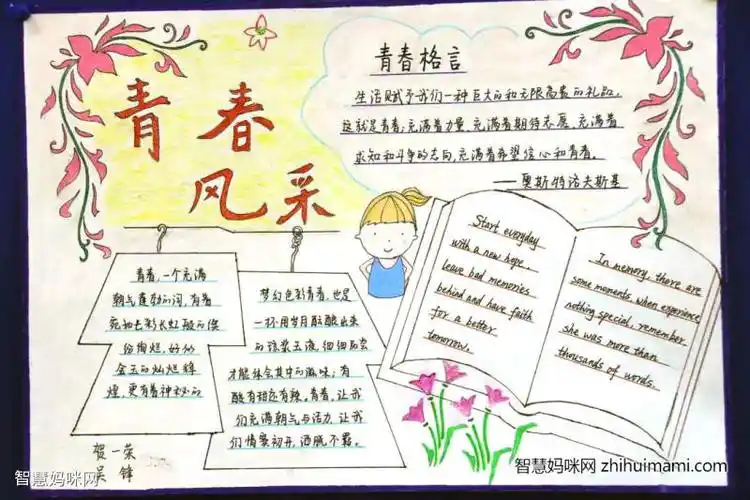 青春
风采
青春格言
生活赋予我们一种巨大的和无限高贵的礼品,
这就是青春:充满着力量,充满着期待志愿,充满着
求知和斗争的志向,充满着希望信心和青春。
——奥斯特洛夫斯基
青春,一个充满
朝气蓬勃的词,有着
宛如七彩长虹般的俊
俗绚烂,好似
金玉的灿烂辉
煌,更有着神秘的
梦幻色彩青春,也是
一杯用岁月酝酿出来
的琼浆玉液,细细品尝
才能体会其中的滋味:有
酸有甜还有辣。青春,让我
们充满朝气与活力,让我
们情窦初开,洒脱不羁。
Start everyday
with a new hope,
leave bad memories
behind and have faith
for a better
tomorrow.
In memory, there are
some moments, when experience
nothing special, remember
she was more than
thousands of words.
贺一荣
吴锋
智慧妈咪网
智慧妈咪网 zhihuimami.com